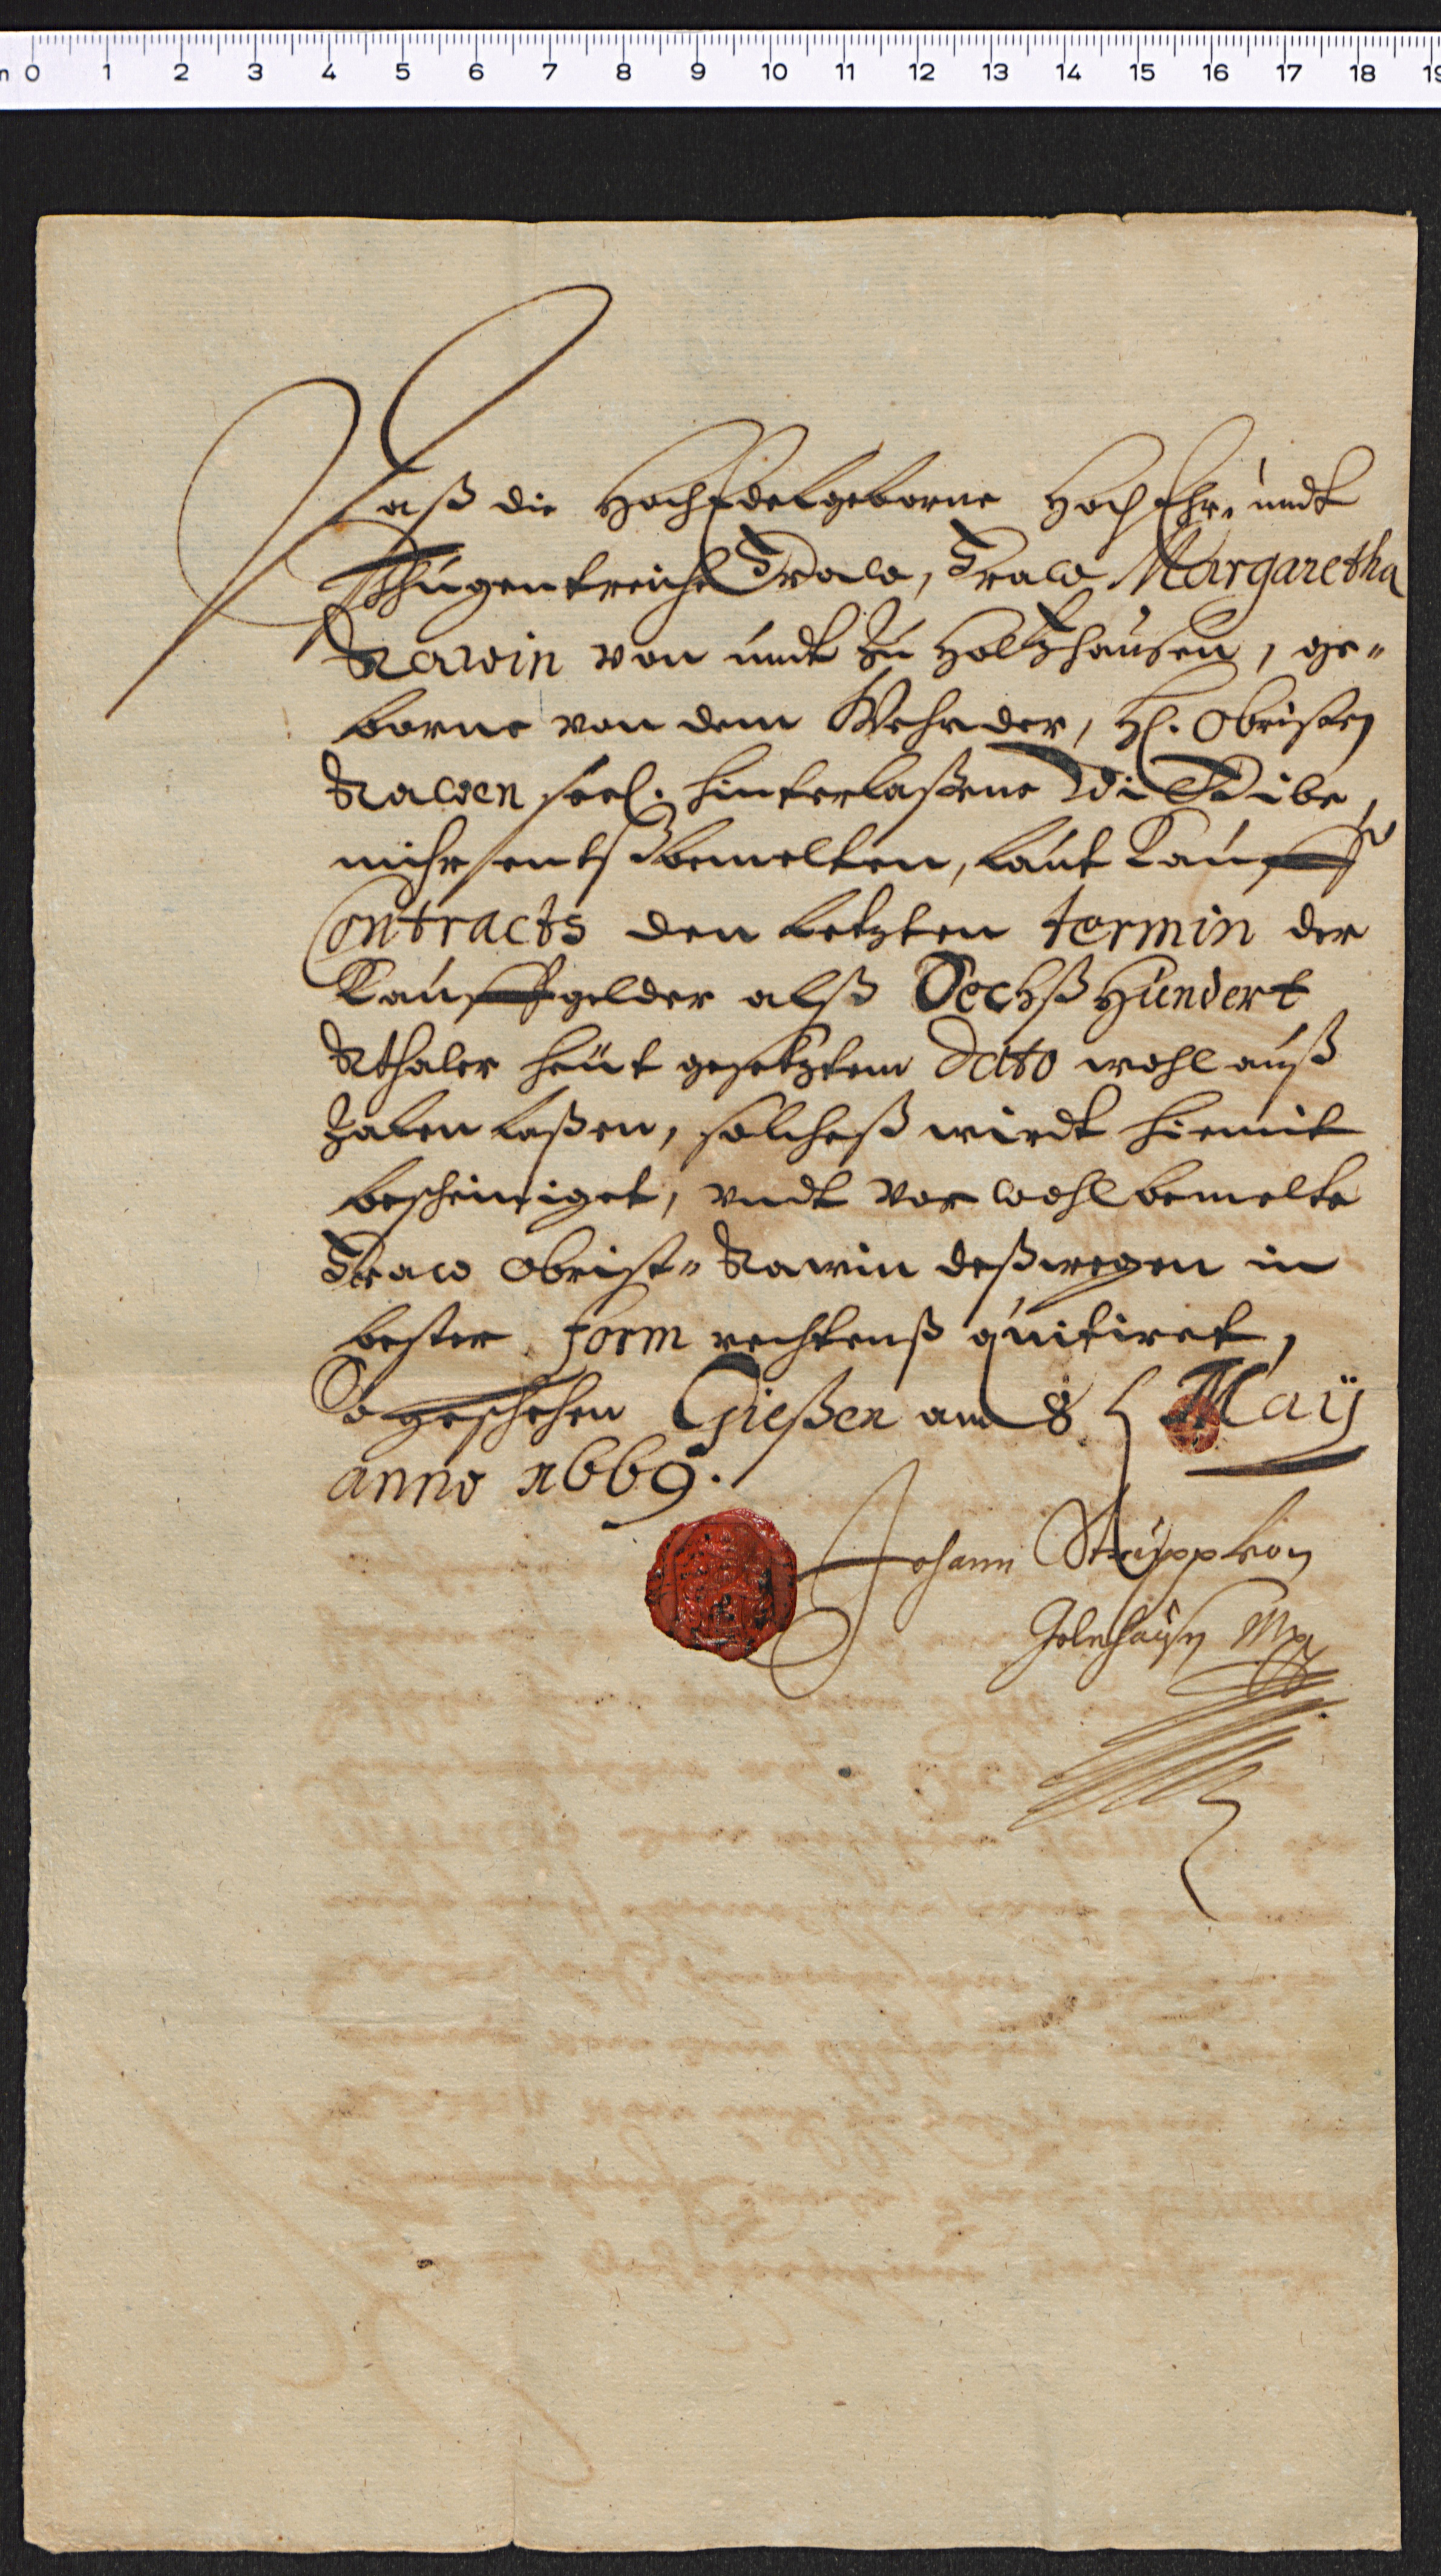 0 1 2 3 4 5 6 7 8 9 10 11 12 13 14 15 16 17 18 19
Daß die HochEdelgeborne Hoch Ehr, undt
Thugentreiche Fraw, Fraw Margaretha
Rawin von undt Zu Holtzhausen, ge„
borne von dem Wehrder, H. Obristen
Rawen seel. hinterlaßene Wittibe,
mihr bemelten, laut Kauff
Contracts den letzten termin der
Kauffgelder alß Sechß Hundert
Rthaler heüt gesetztem dato wohl auß
Zalen laßen, solcheß wirdt hiemit
bescheiniget, undt vor wohlbemelte
Fraw Obrist„ Rawin deßwegen in
bester form rechtenß quitiret,
So geschehen Gießen am 8 Maÿ
anno 1669.
Johann Strupp von
Gelnhausen Mp